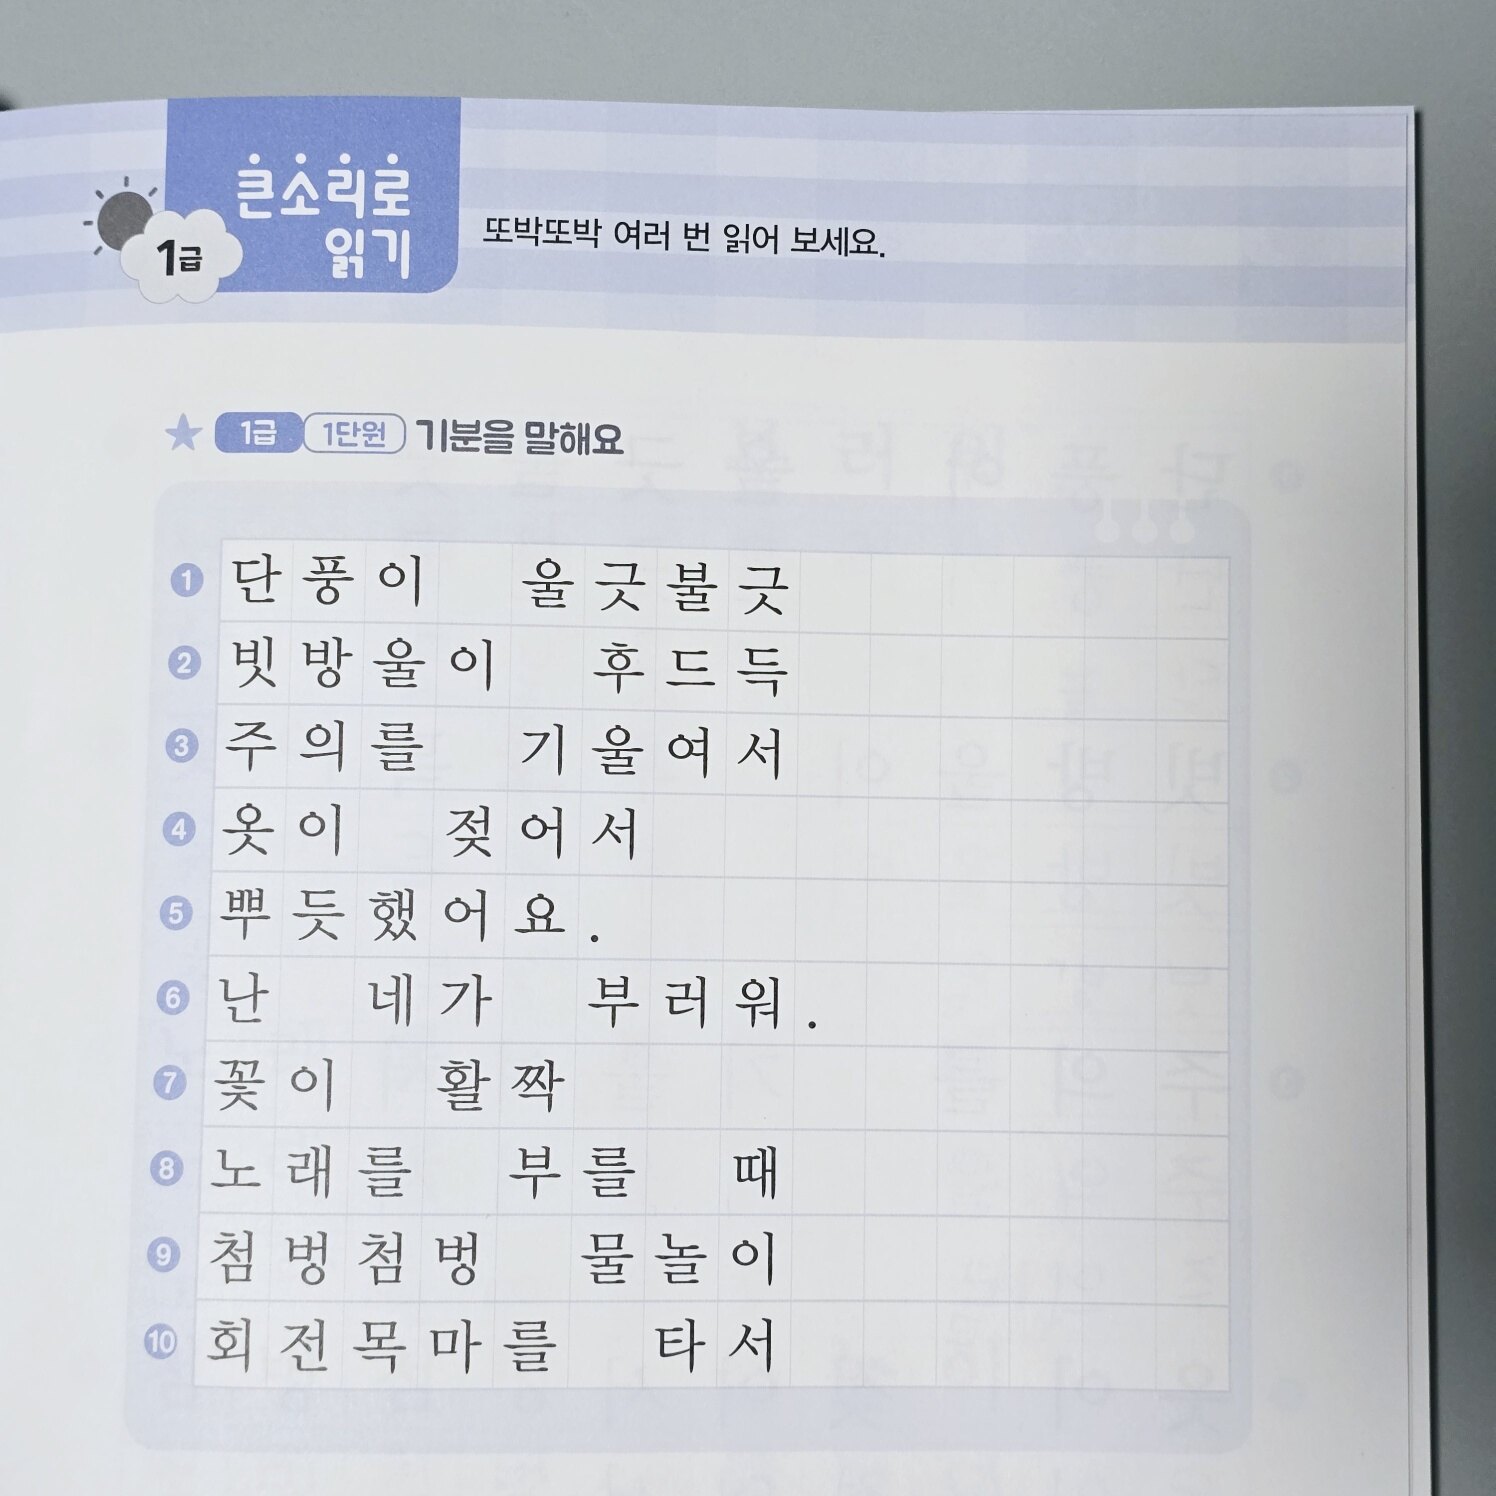 큰소리로
읽기
1급
또박또박 여러 번 읽어 보세요.
1급 1단원 기분을 말해요
1 단풍이 울긋불긋
2 빗방울이 후드득
3 주의를 기울여서
4 옷이 젖어서
5 뿌듯했어요.
6 난 네가 부러워.
7 꽃이 활짝
8 노래를 부를 때
9 첨벙첨벙 물놀이
10 회전목마를 타서